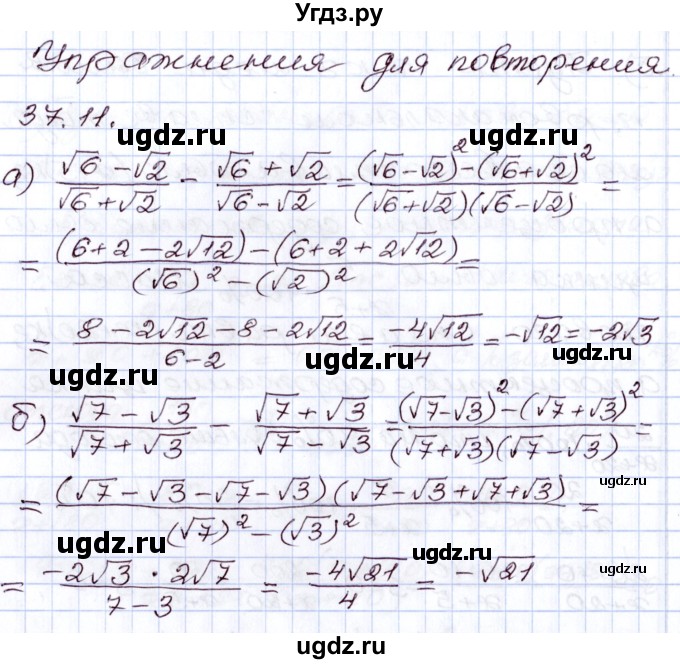 Угдз.ру
Упражнения для повторения.
37.11.
ugdz.ru ugdz.ru
а) (√6 - √2)/(√6 + √2) - (√6 + √2)/(√6 - √2) = ((√6 - √2)² - (√6 + √2)²)/((√6 + √2)(√6 - √2)) =
= ((6 + 2 - 2√12) - (6 + 2 + 2√12))/((√6)² - (√2)²) =
= (8 - 2√12 - 8 - 2√12)/(6 - 2) = (-4√12)/4 = -√12 = -2√3
ugdz.ru ugdz.ru ugdz.ru
б) (√7 - √3)/(√7 + √3) - (√7 + √3)/(√7 - √3) = ((√7 - √3)² - (√7 + √3)²)/((√7 + √3)(√7 - √3)) =
= ((√7 - √3 - √7 - √3)(√7 - √3 + √7 + √3))/((√7)² - (√3)²) =
ugdz.ru ugdz.ru ugdz.ru
= (-2√3 · 2√7)/(7 - 3) = (-4√21)/4 = -√21
ugdz.ru
ugdz.ru